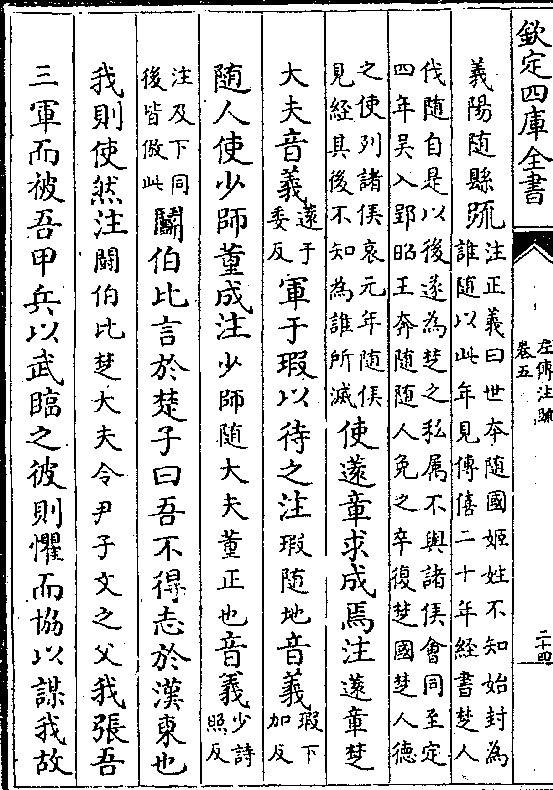 欽定四庫全書
左傳注疏
卷五
二十四
義陽随縣疏
注正義曰世本随國姬姓不知始封為
誰随以此年見傳僖二十年經書楚人
伐随自是以後遂為楚之私属不與諸侯會同至定
四年吳入郢昭王奔随随人免之卒復楚國楚人德
之使列諸侯哀元年随侯
見經其後不知為誰所滅
使薳章求成焉注薳章楚
大夫音義
薳于
委反
軍于瑕以待之注瑕随地音義
瑕下
加反
随人使少師董成注少師随大夫董正也音義
少詩
照反
注及下同
後皆倣此
鬭伯比言於楚子曰吾不得志於漢東也
我則使然注鬭伯比楚大夫令尹子文之父我張吾
三軍而被吾甲兵以武臨之彼則懼而協以謀我故